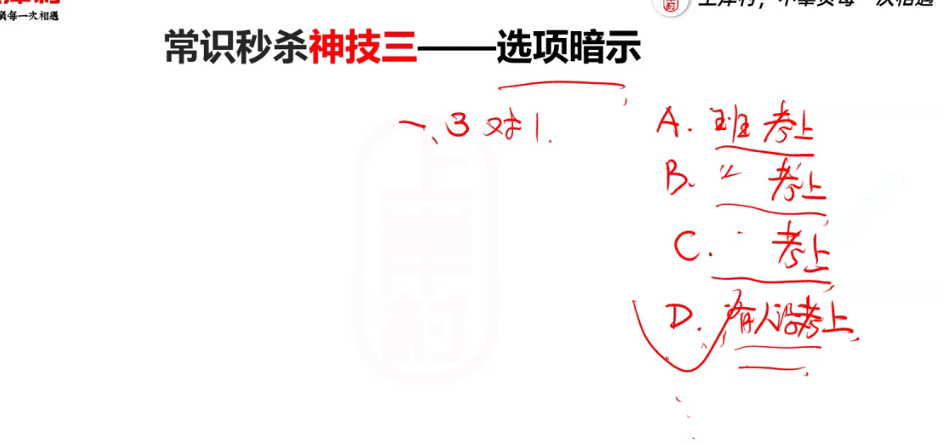 负每一次相遇
上岸村，不辜负每一次相遇
常识秒杀神技三——选项暗示
一、3对1.
A. 班考上
B. 〃 考上
C. 考上
D. 有人没考上
上岸村